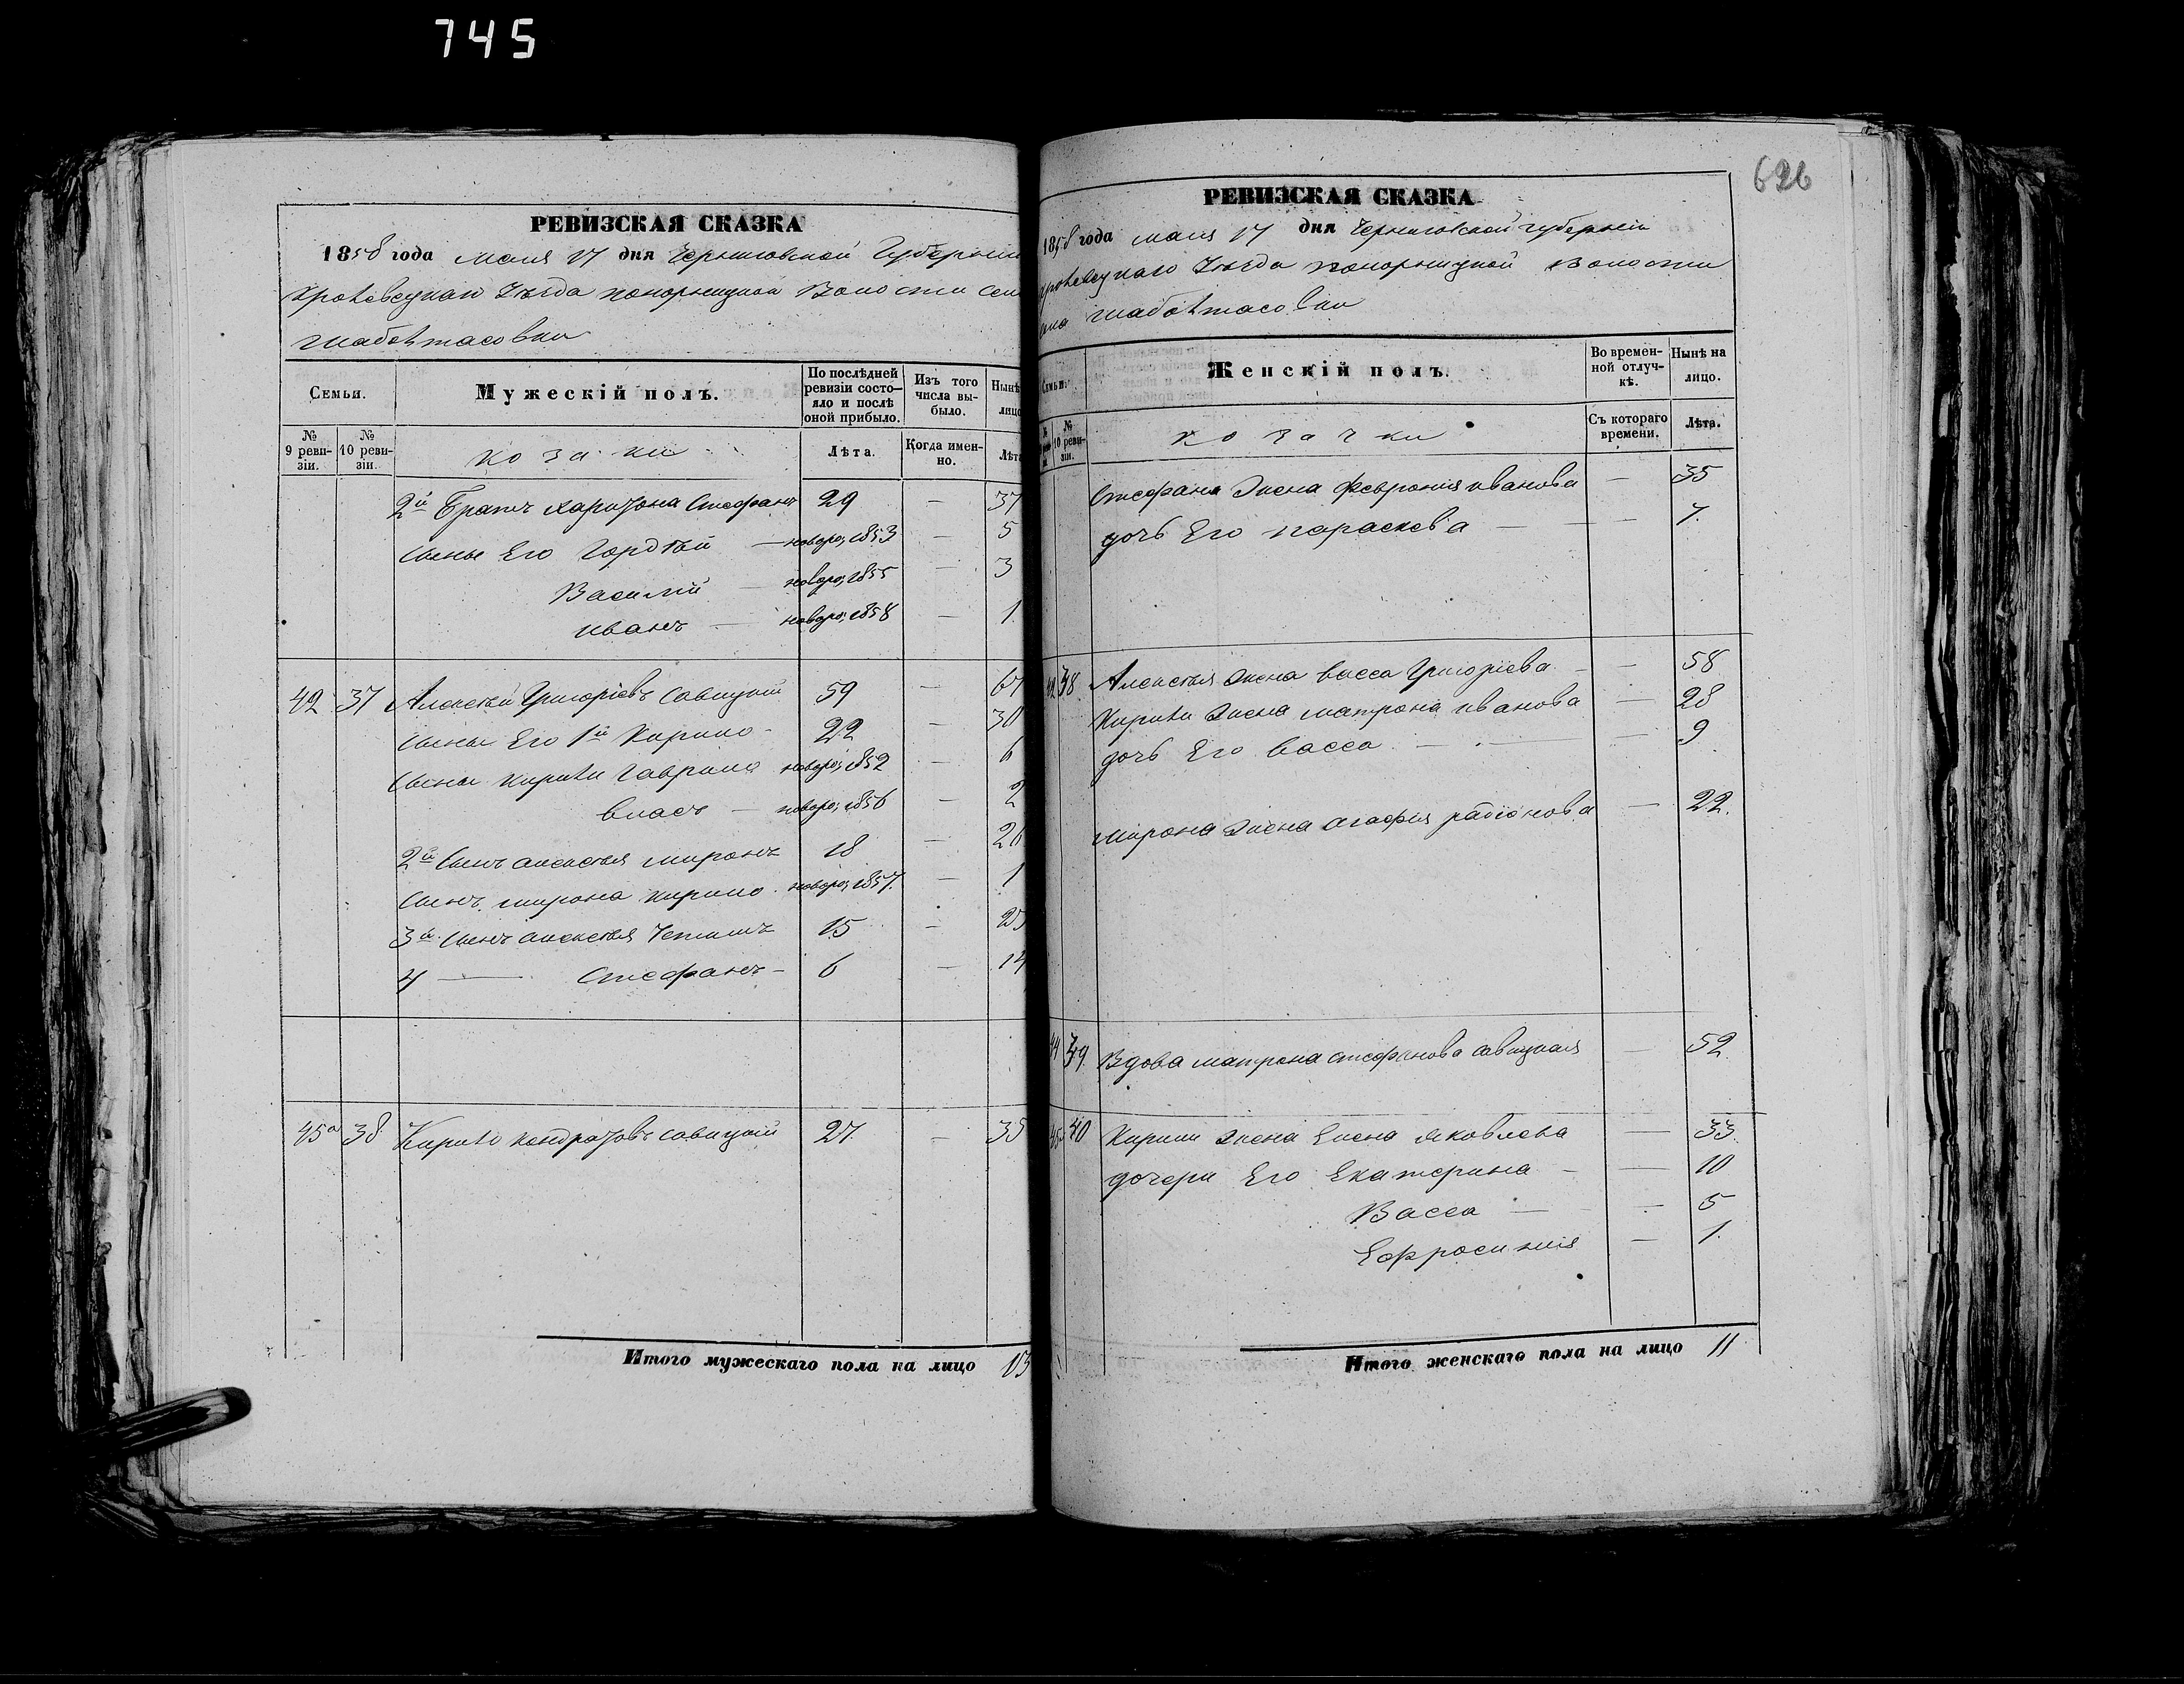 745
626
РЕВИЗСКАЯ СКАЗКА
1858 года маия 17 дня Черниговской Губернии
Кролевецкаго Уѣзда понорницкой Волости сел
шабалтасовки
Семьи. Мужескій полъ. По послѣдней ревизіи состояло и послѣ оной прибыло. Изъ того числа выбыло. Нынѣ лицо
№ 9 ревизіи. № 10 ревизіи. козаки Лѣта. Когда именно. Лѣта
2й Братъ харитона Стефанъ 29 — 37
сыны Его Гордѣй — новоро; 1853 — 5
Василій — новоро; 1855 — 3
иванъ — новоро; 1858 — 1
42 37 Алексѣй Григоріевъ савицкій 59 — 67
сыны Его 1й Кирило - 22 — 30
сыны кирилы гаврило новоро; 1852 — 6
власъ — новоро; 1856 — 2
2й сынъ алексѣя миронъ 18 — 26
сынъ мирона кирило новоро; 1857. — 1
3й сынъ алексѣя 15 — 23
4 — Стефанъ - 6 — 14
45а 38 Кирило кондратовъ савицкій 27. — 35
Итого мужескаго пола на лицо 13
РЕВИЗСКАЯ СКАЗКА
1858 года маия 17 дня Черниговской губерніи
кролевецкаго Уѣзда понорницкой волости
шабалтасовки
Семьи. Женскій полъ. Во временной отлучкѣ. Нынѣ на лицо.
№ 10 ревизіи. козачки Съ котораго времени. Лѣта.
Стефана жена феврония иванова — 35
дочь Его параскева — — 7.
42 38 Алексѣя жена васса Григоріева — 58
Кирилы жена матрона иванова — 28
дочь Его васса — — 9
мирона жена агафия радіонова — 22.
44 39. Вдова матрона стефанова савицкая — 52.
45 40 Кирилы жена Елена яковлева — 33.
дочери Его Екатерина — 10
Васса — — 5
Ефросиния — 1.
Итого женскаго пола на лицо 11